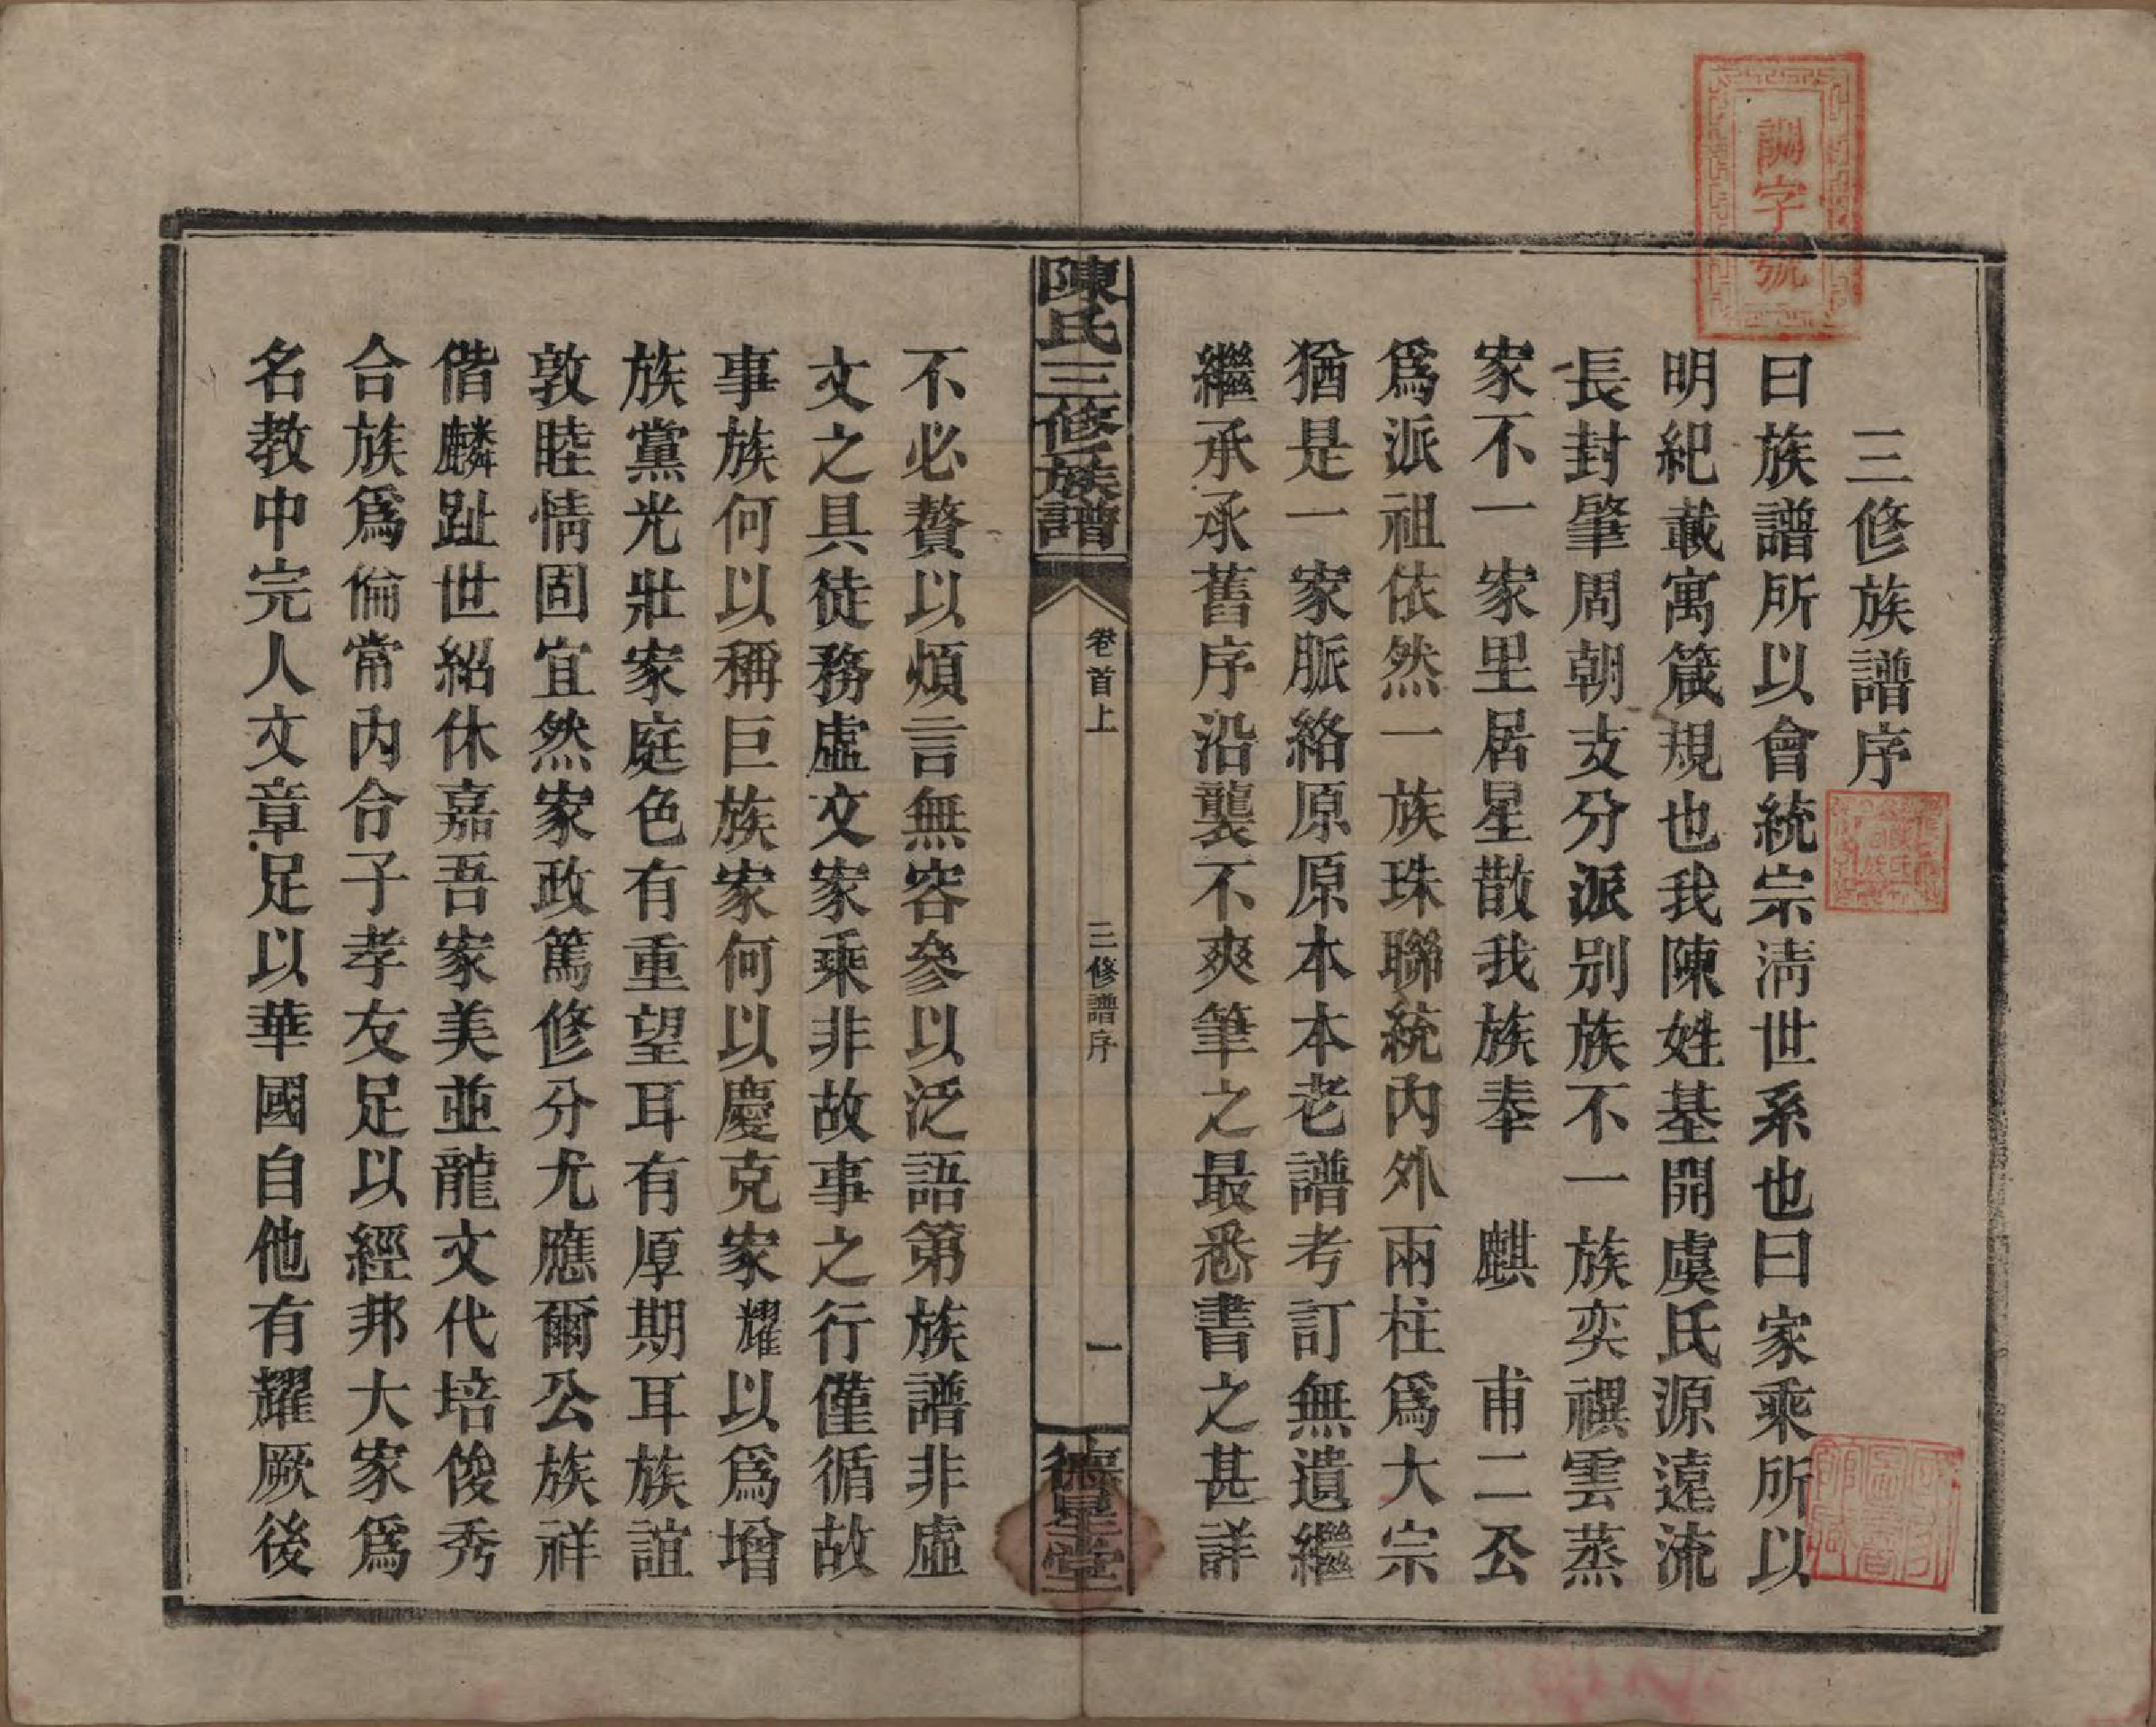 調字號
三修族譜序
曰族譜所以會統宗淸世系也曰家乘所以
明紀載寓箴規也我陳姓基開虞氏源遠流
長封肇周朝支分派別族不一族奕禩雲蒸
家不一家里居星散我族奉　麒　甫二公
爲派祖依然一族珠聯統內外兩柱爲大宗
猶是一家脈絡原原本本老譜考訂無遺繼
繼承承舊序沿襲不爽筆之最悉書之甚詳
陳氏三修族譜
卷首上
三修譜序
一
德星堂
不必贅以煩言無容參以泛語第族譜非虛
文之具徒務虛文家乘非故事之行僅循故
事族何以稱巨族家何以慶克家耀以爲增
族黨光壯家庭色有重望耳有厚期耳族誼
敦睦情固宜然家政篤修分尤應爾公族祥
偕麟趾世紹休嘉吾家美並龍文代培俊秀
合族爲倫常內合子孝友足以經邦大家爲
名教中完人文章足以華國自他有耀厥後